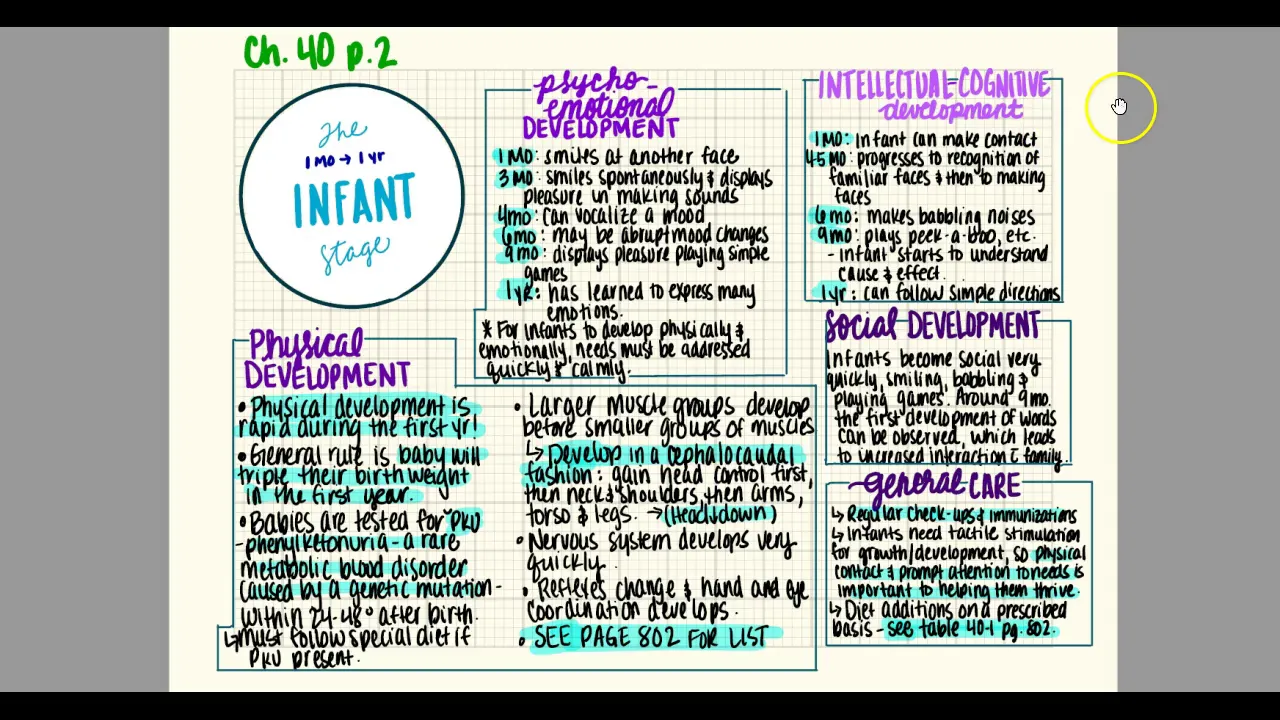 Ch. 40 p.2
The
1 MO → 1 yr
INFANT
Stage
psycho-
emotional
DEVELOPMENT
1 MO: smiles at another face
3 MO: smiles spontaneously & displays
pleasure in making sounds
4mo: can vocalize a mood
6mo: may be abrupt mood changes
9mo: displays pleasure playing simple
games
1yr: has learned to express many
emotions.
* For infants to develop physically &
emotionally, needs must be addressed
quickly & calmly.
INTELLECTUAL-COGNITIVE
development
1MO: Infant can make contact
4-5 MO: progresses to recognition of
familiar faces & then to making
faces
6mo: makes babbling noises
9mo: plays peek-a-boo, etc.
- infant starts to understand
cause & effect.
1yr: can follow simple directions
Social DEVELOPMENT
Infants become social very
quickly, smiling, babbling &
playing games. Around 9mo.
the first development of words
can be observed, which leads
to increased interaction c̄ family.
Physical
DEVELOPMENT
• Physical development is
rapid during the first yr!
• General rule is baby will
triple their birth weight
in the first year.
• Babies are tested for PKU
- phenylketonuria - a rare
metabolic blood disorder
caused by a genetic mutation -
within 24-48° after birth.
↳ must follow special diet if
PKU present.
• Larger muscle groups develop
before smaller groups of muscles
↳ Develop in a cephalocaudal
fashion: gain head control first,
then neck & shoulders, then arms,
torso & legs. → (Head ↓ down)
• Nervous system develops very
quickly.
• Reflexes change & hand and eye
coordination develops.
• SEE PAGE 802 FOR LIST
general CARE
↳ Regular check-ups & immunizations
↳ Infants need tactile stimulation
for growth/development, so physical
contact & prompt attention to needs is
important to helping them thrive.
↳ Diet additions on a prescribed
basis - see table 40-1 pg. 802.